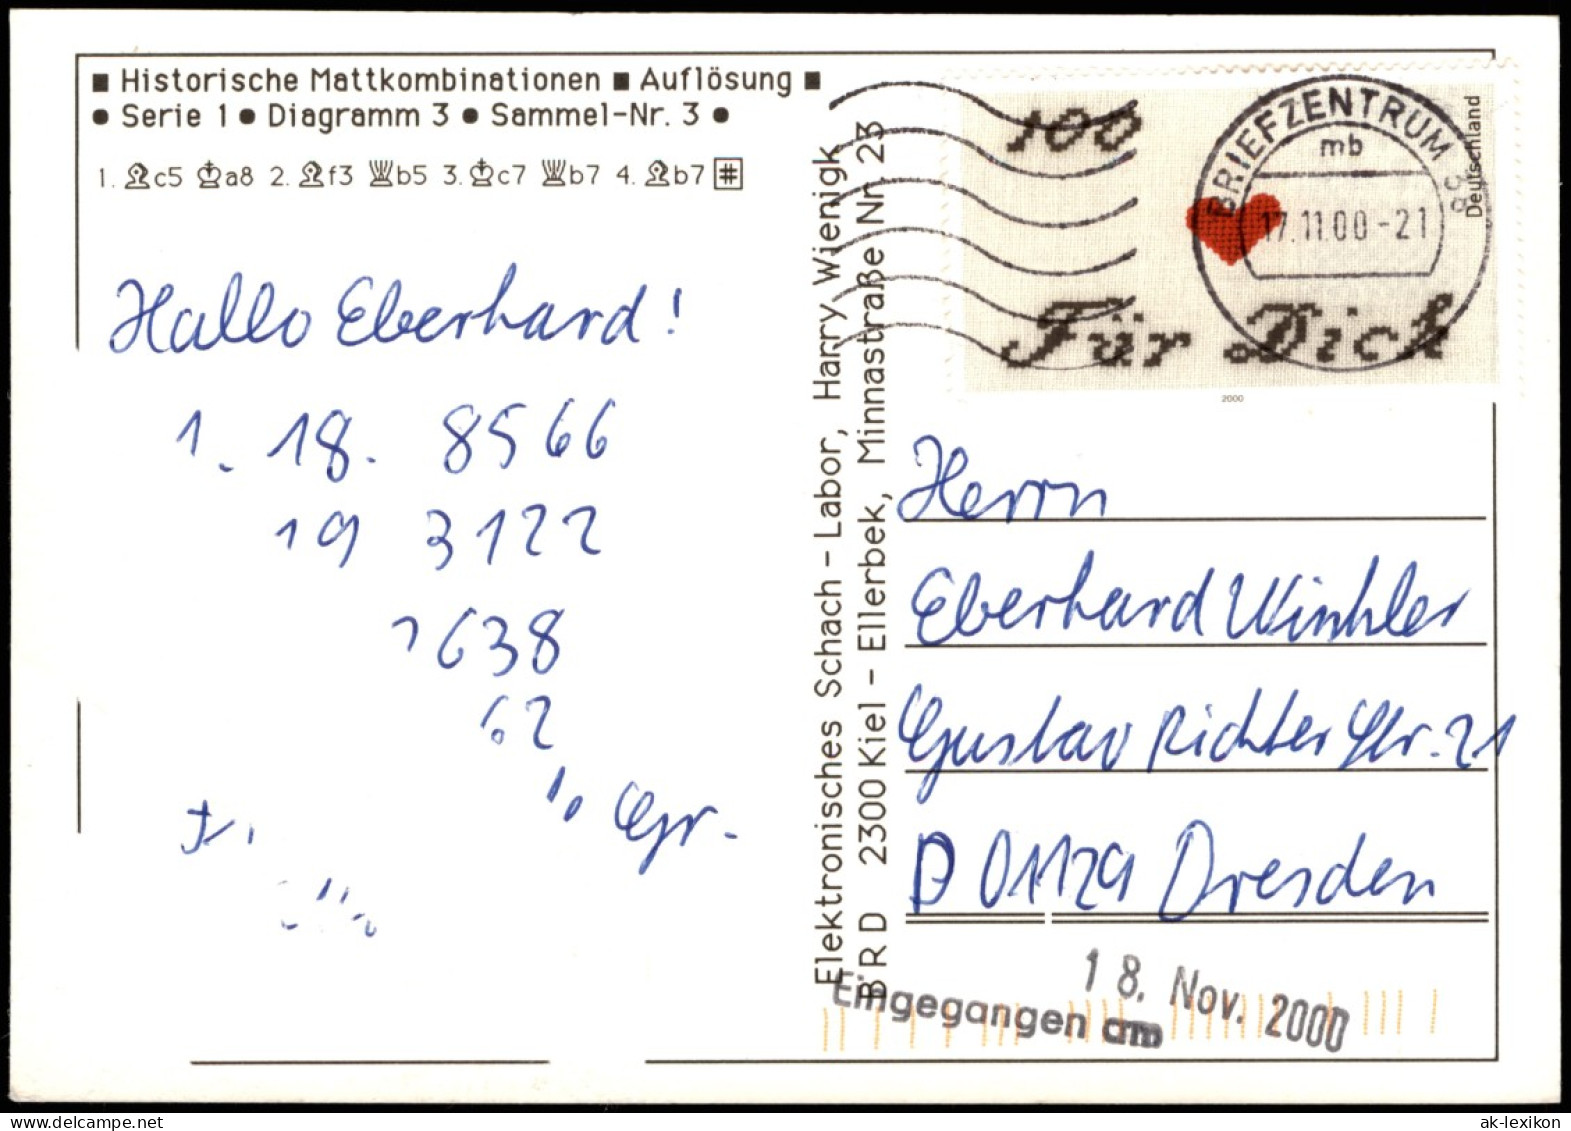 ■ Historische Mattkombinationen ■ Auflösung ■
● Serie 1 ● Diagramm 3 ● Sammel-Nr. 3 ●
1. ♗c5 ♔a8 2. ♗f3 ♕b5 3. ♔c7 ♕b7 4. ♗b7 #
Hallo Eberhard!
1. 18. 8566
19 3122
1638
62
Gr.
Elektronisches Schach-Labor, Harry Wienigk
BRD 2300 Kiel - Ellerbek, Minnastraße Nr. 23
100
Für Dich
Deutschland
2000
BRIEFZENTRUM 38
mb
17.11.00-21
Herrn
Eberhard Winkler
Gustav Richter Str. 21
D 01129 Dresden
Eingegangen am 18. Nov. 2000
ak-lexikon